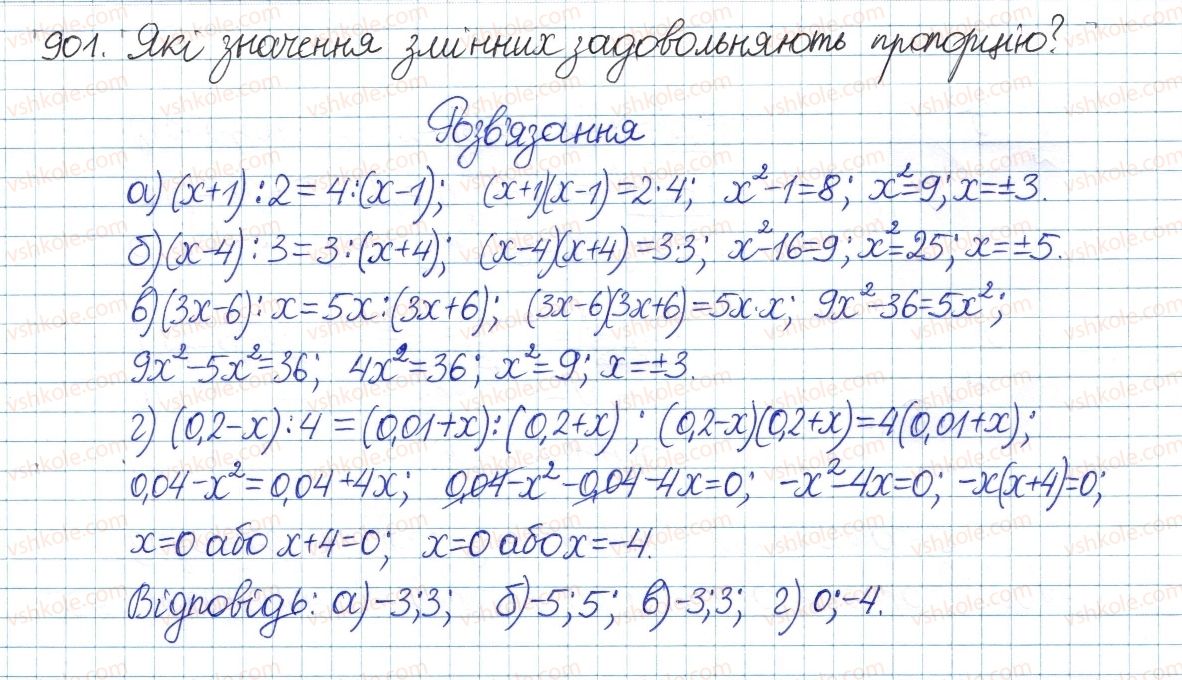 901. Які значення змінних задовольняють пропорцію?
Розв'язання
а) (x+1) : 2 = 4 : (x-1); (x+1)(x-1) = 2·4; x²-1=8; x²=9; x=±3.
б) (x-4) : 3 = 3 : (x+4); (x-4)(x+4) = 3·3; x²-16=9; x²=25; x=±5.
в) (3x-6) : x = 5x : (3x+6); (3x-6)(3x+6) = 5x·x; 9x²-36=5x²;
9x²-5x²=36; 4x²=36; x²=9; x=±3.
г) (0,2-x) : 4 = (0,01+x) : (0,2+x); (0,2-x)(0,2+x)=4(0,01+x);
0,04-x²=0,04+4x; 0,04-x²-0,04-4x=0; -x²-4x=0; -x(x+4)=0;
x=0 або x+4=0; x=0 або x=-4.
Відповідь: а) -3; 3; б) -5; 5; в) -3; 3; г) 0; -4.